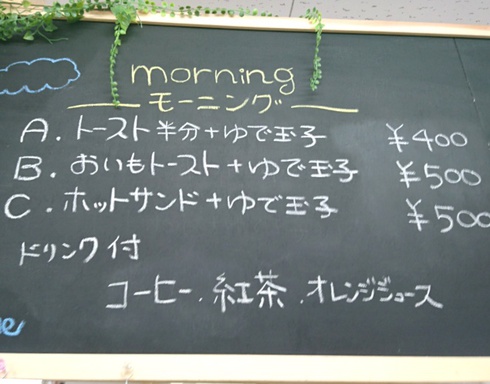 morning
モーニング
A. トースト半分+ゆで玉子 ¥400
B. おいもトースト+ゆで玉子 ¥500
C. ホットサンド+ゆで玉子 ¥500
ドリンク付
コーヒー.紅茶.オレンジジュース